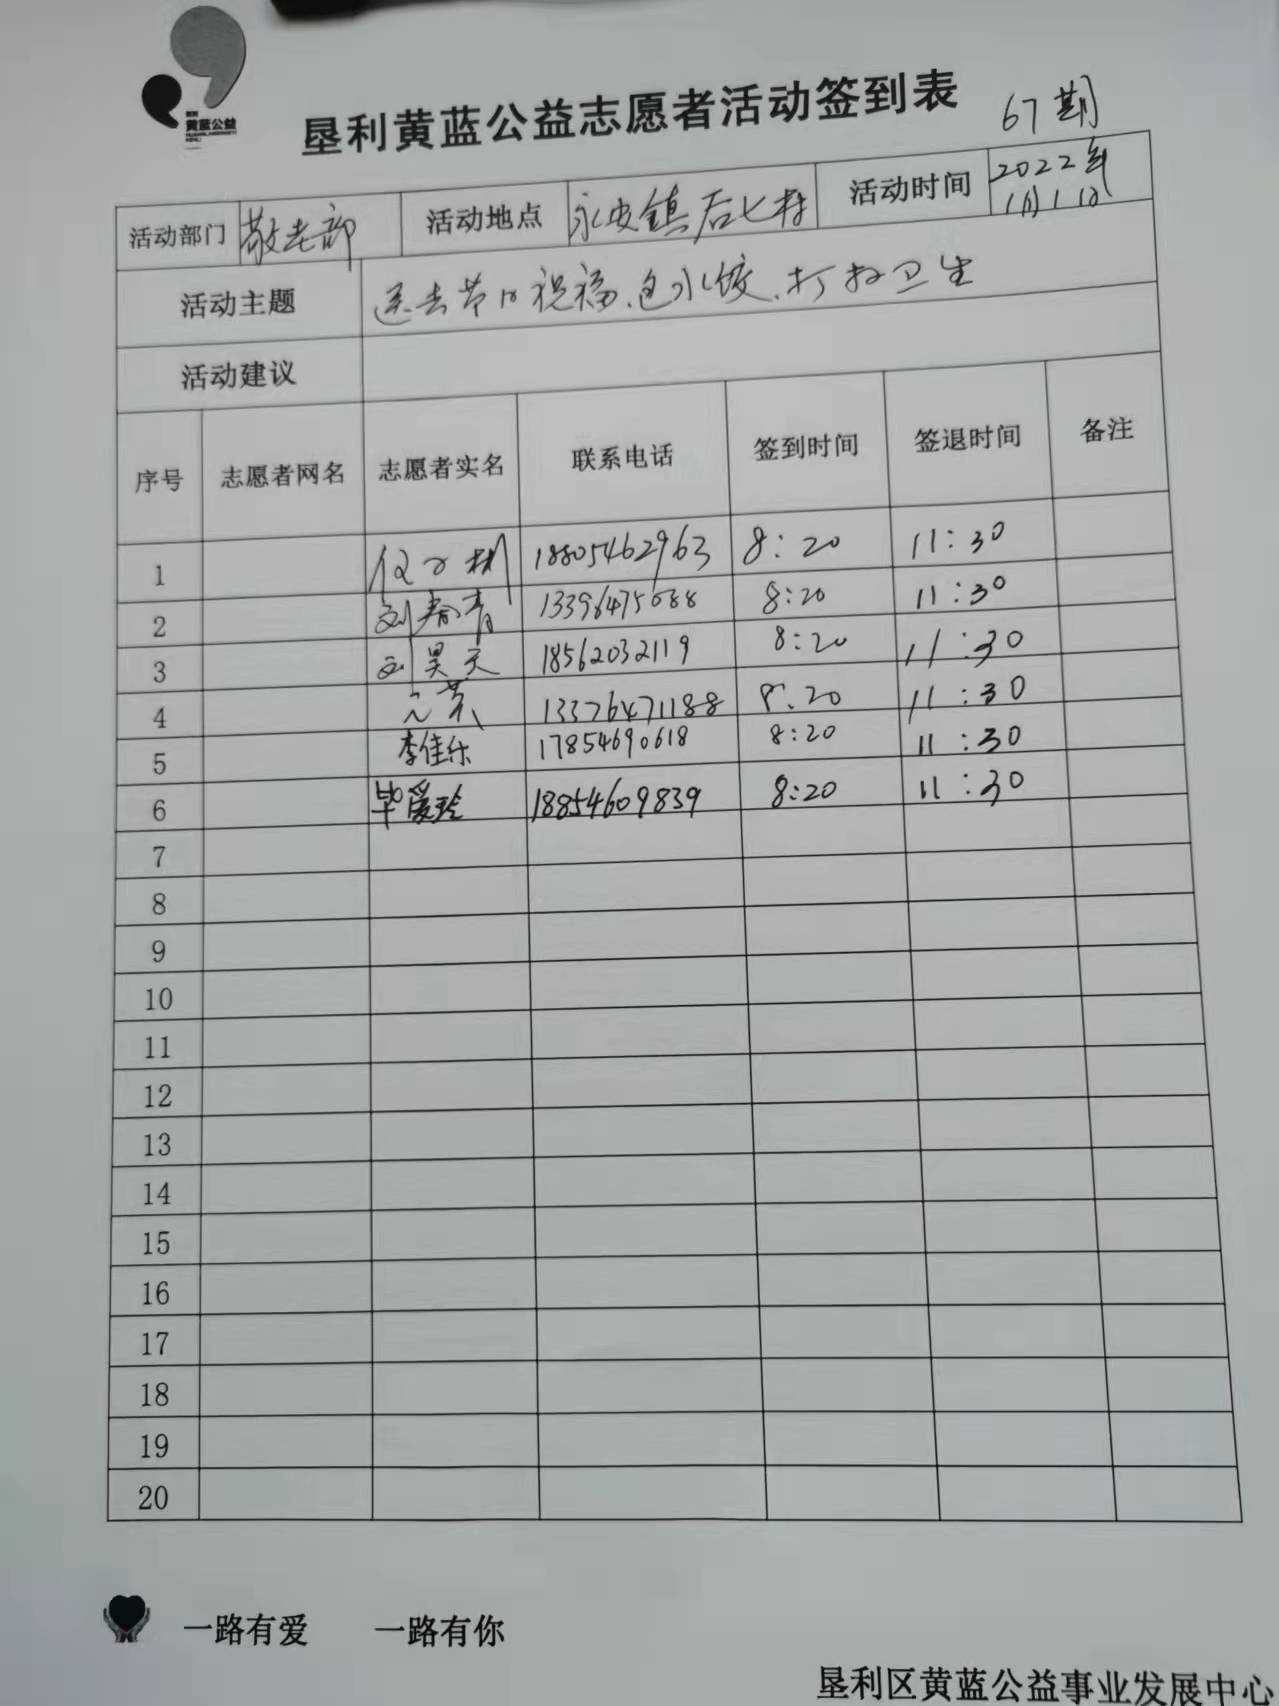 黄蓝公益
垦利黄蓝公益志愿者活动签到表 67期
活动部门 敬老部 活动地点 永安镇后七村 活动时间 2022年1月1日
活动主题 送去节日祝福、包水饺、打扫卫生
活动建议
序号 志愿者网名 志愿者实名 联系电话 签到时间 签退时间 备注
1 18805462963 8:20 11:30
2 刘春青 8:20 11:30
3 刘昊天 18562032119 8:20 11:30
4 8:20 11:30
5 李佳乐 17854690618 8:20 11:30
6 毕爱玲 18854609839 8:20 11:30
7
8
9
10
11
12
13
14
15
16
17
18
19
20
一路有爱 一路有你
垦利区黄蓝公益事业发展中心